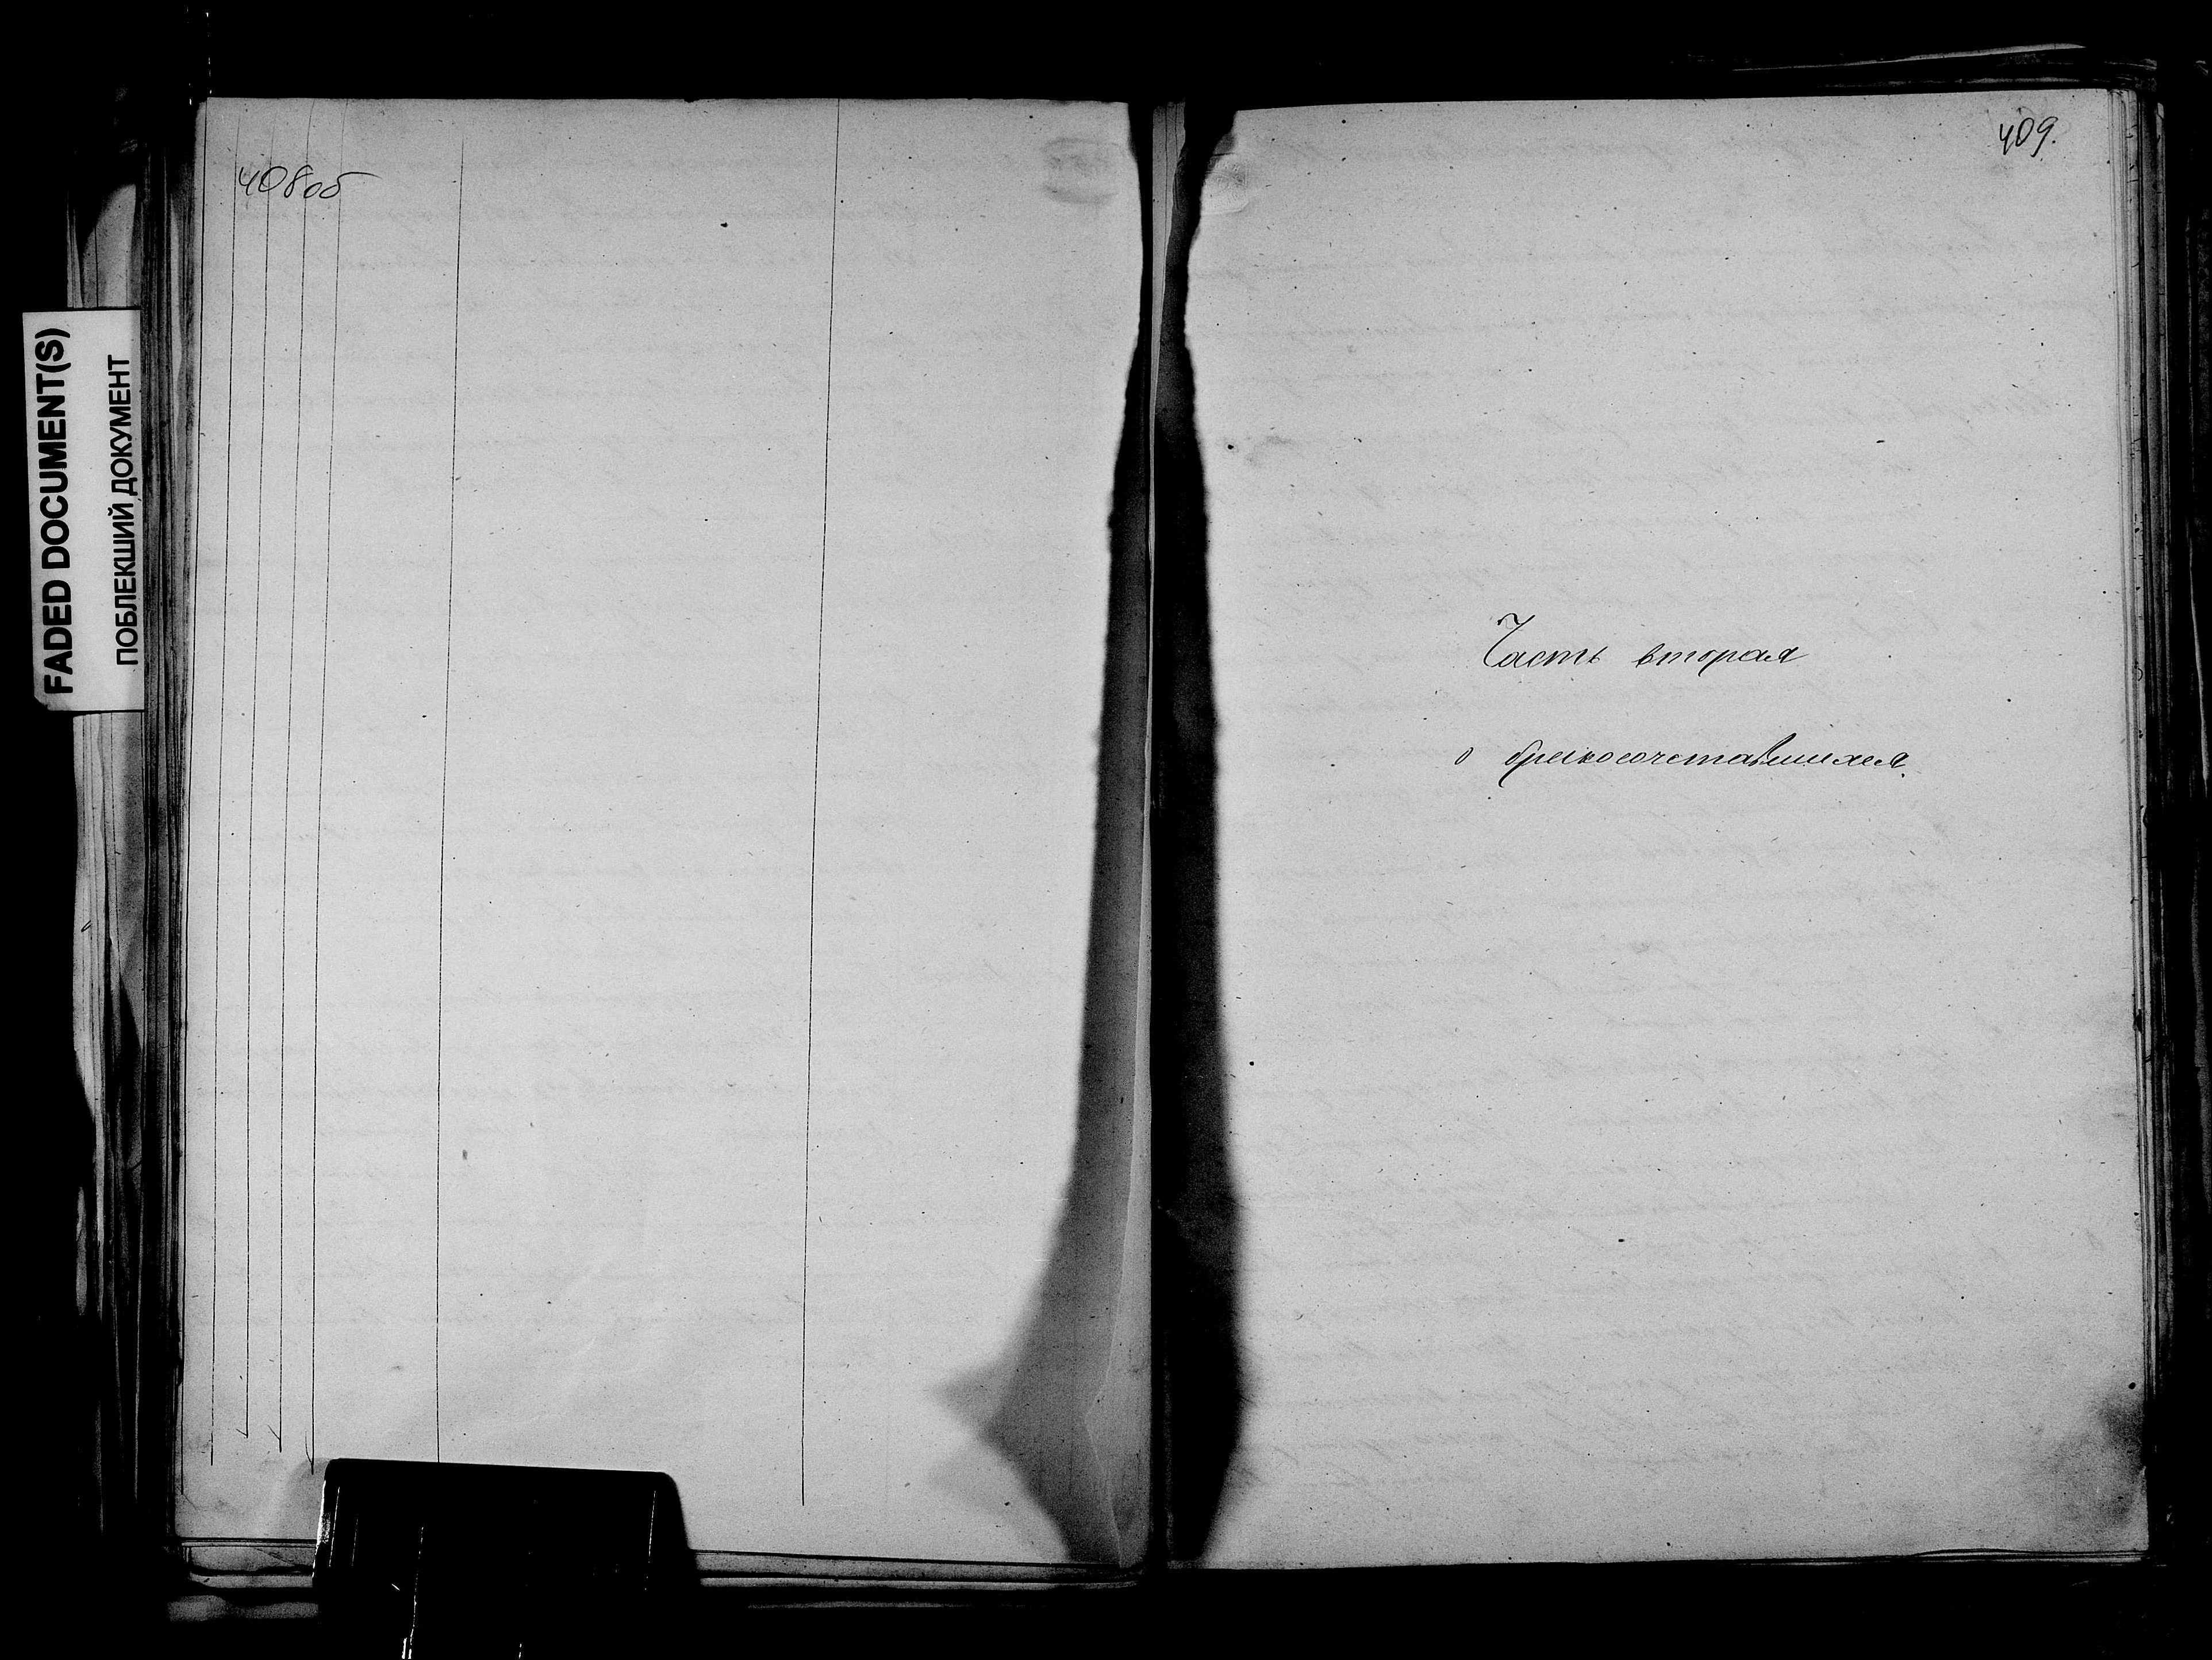 FADED DOCUMENT(S)
ПОБЛЕКШИЙ ДОКУМЕНТ
408об
409.
Часть вторая
о бракосочетавшихся.